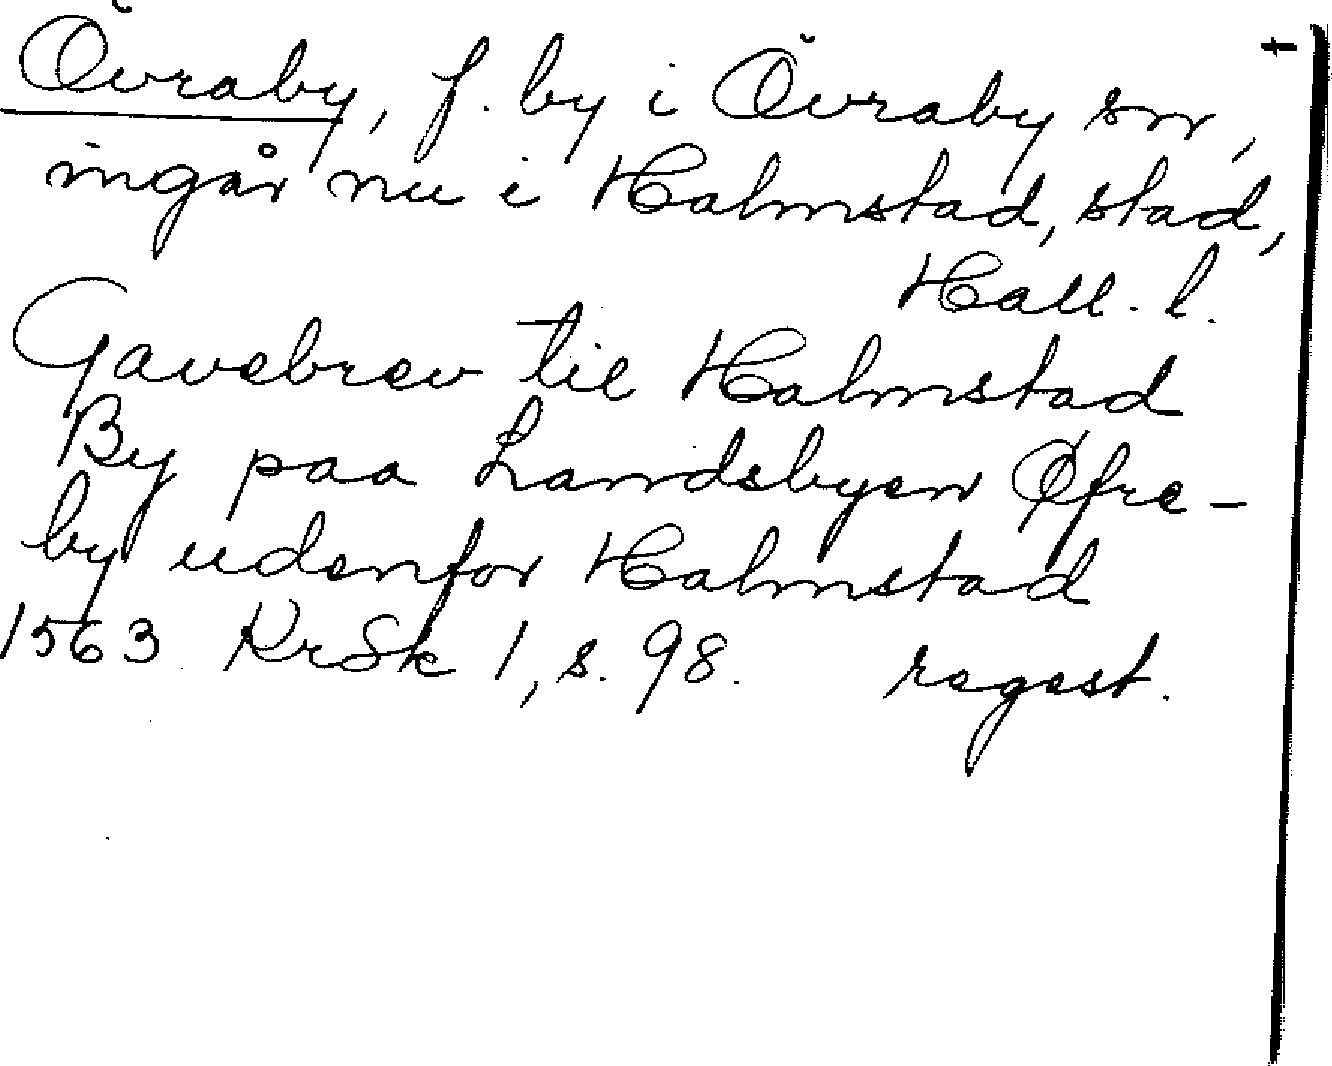 Övraby, f. by i Övraby sn,
ingår nu i Halmstad, stad,
Hall. l.
Gavebrev til Halmstad
By paa Landsbyen Øfre-
by udenfor Halmstad
1563 KrSk 1, s. 98. regest.